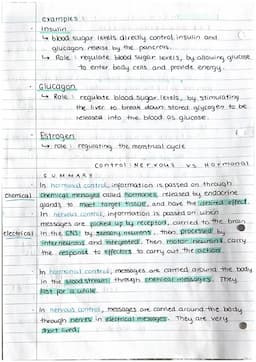 examples:
Insulin
↳ blood sugar levels directly control insulin and
glucagon release by the pancreas.
↳ Role: regulate blood sugar levels, by allowing glucose
to enter body cells and provide energy.
Glucagon
↳ Role: regulate blood sugar levels, by stimulating
the liver to break down stored glycogen to be
released into the blood as glucose.
Estrogen
↳ role: regulating the menstrual cycle
Control: NERVOUS VS HORMONAL
SUMMARY
In hormonal control, information is passed on through
chemical chemical messages called hormones, released by endocrine
glands, to meet target tissue, and have the desired effect.
In nervous control, information is passed on when
messages are picked up by receptors, carried to the brain
electrical in the CNS by sensory neurons, then processed by
interneurons and integrated. Then, motor neurons carry
the response to effectors to carry out the action.
In hormonal control, messages are carried around the body
in the blood stream through chemical messages. They
last for a while.
In nervous control, messages are carried around the body
through nerves in electrical messages. They are very
short lived.